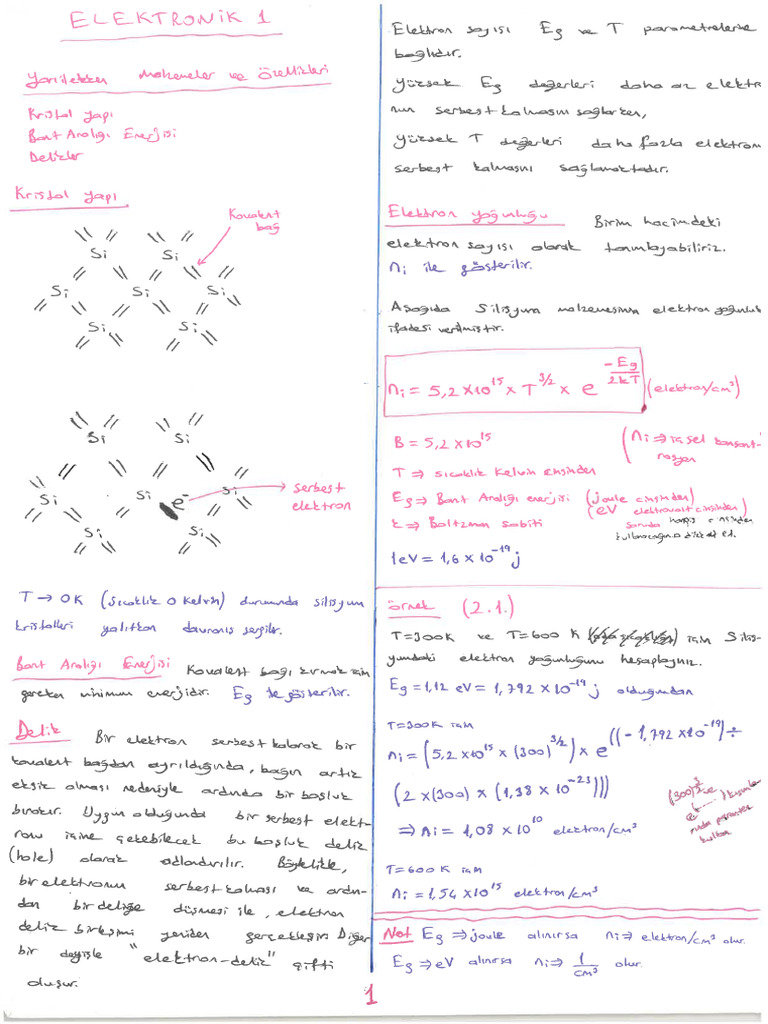 ELEKTRONİK 1
Yarıiletken Malzemeler ve Özellikleri
Kristal yapı
Bant Aralığı Enerjisi
Delikler
Kristal yapı
Kovalent
bağ
Si Si
Si Si Si
Si Si
Si Si
Si Si e⁻ Si
Si Si
serbest
elektron
T → 0K (sıcaklık 0 kelvin) durumunda silisyum
kristalleri yalıtkan davranış sergiler.
Bant Aralığı Enerjisi Kovalent bağı kırmak için
gereken minimum enerjidir. Eg ile gösterilir.
Delik Bir elektron serbest kalarak bir
kovalent bağdan ayrıldığında, bağın artık
eksik olması nedeniyle ardında bir boşluk
bırakır. Uygun olduğunda bir serbest elekt-
ronu içine çekebilecek bu boşluk delik
(hole) olarak adlandırılır. Böylelikle,
bir elektronun serbest kalması ve ardın-
dan bir deliğe düşmesi ile, elektron
delik birleşimi yeniden gerçekleşir. Diğer
bir deyişle "elektron-delik" çifti
oluşur.
Elektron sayısı Eg ve T parametrelerine
bağlıdır.
Yüksek Eg değerleri daha az elektro
nun serbest kalmasını sağlarken,
yüksek T değerleri daha fazla elektron
serbest kalmasını sağlamaktadır.
Elektron yoğunluğu Birim hacimdeki
elektron sayısı olarak tanımlayabiliriz.
ni ile gösterilir.
Aşağıda Silisyum malzemesinin elektron yoğunluk
ifadesi verilmiştir.
ni = 5,2 x 10^15 x T^3/2 x e^(-Eg/2kT) (elektron/cm³)
B = 5,2 x 10^15 (ni ⇒ içsel konsant-
rasyon
T ⇒ sıcaklık Kelvin cinsinden
Eg ⇒ Bant Aralığı enerjisi (joule cinsinden)
(eV elektrovolt cinsinden)
k ⇒ Boltzman sabiti soruda hangi cinsinden
kullanacağına dikkat et.
1eV = 1,6 x 10^-19 j
örnek (2.1.)
T=300K ve T=600 K için Silis-
yumdaki elektron yoğunluğunu hesaplayınız.
Eg = 1,12 eV = 1,792 x 10^-19 j olduğundan
T=300K için
ni = (5,2 x 10^15 x (300)^3/2) x e^((-1,792 x 10^-19) ÷
(2 x (300) x (1,38 x 10^-23)))
⇒ ni = 1,08 x 10^10 elektron/cm³
T=600K için
ni = 1,54 x 10^15 elektron/cm³
Not Eg ⇒ joule alınırsa ni ⇒ elektron/cm³ olur.
Eg ⇒ eV alınırsa ni ⇒ 1/cm³ olur.
1